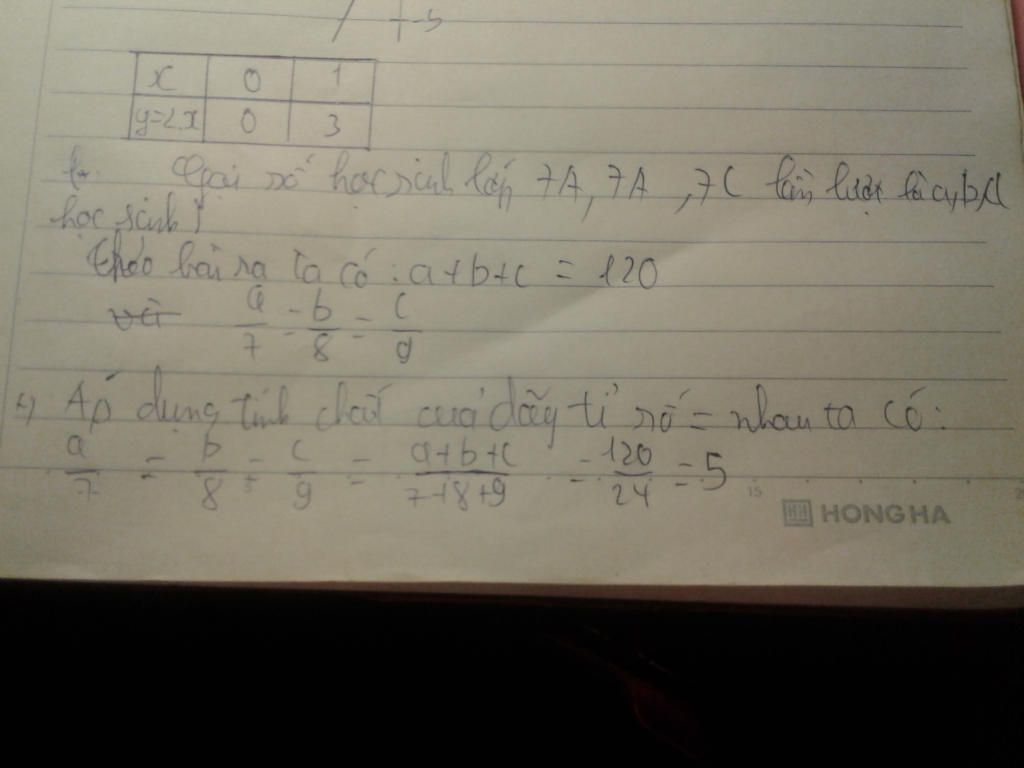 -5
x 0 1
y=2x 0 3
Gọi số học sinh lớp 7A, 7A, 7C lần lượt là a,b,c
học sinh)
theo bài ra ta có: a+b+c = 120
và a/7 = b/8 = c/9
Áp dụng tính chất của dãy tỉ số = nhau ta có:
a/7 = b/8 = c/9 = a+b+c/7+8+9 = 120/24 = 5
15
HONG HA